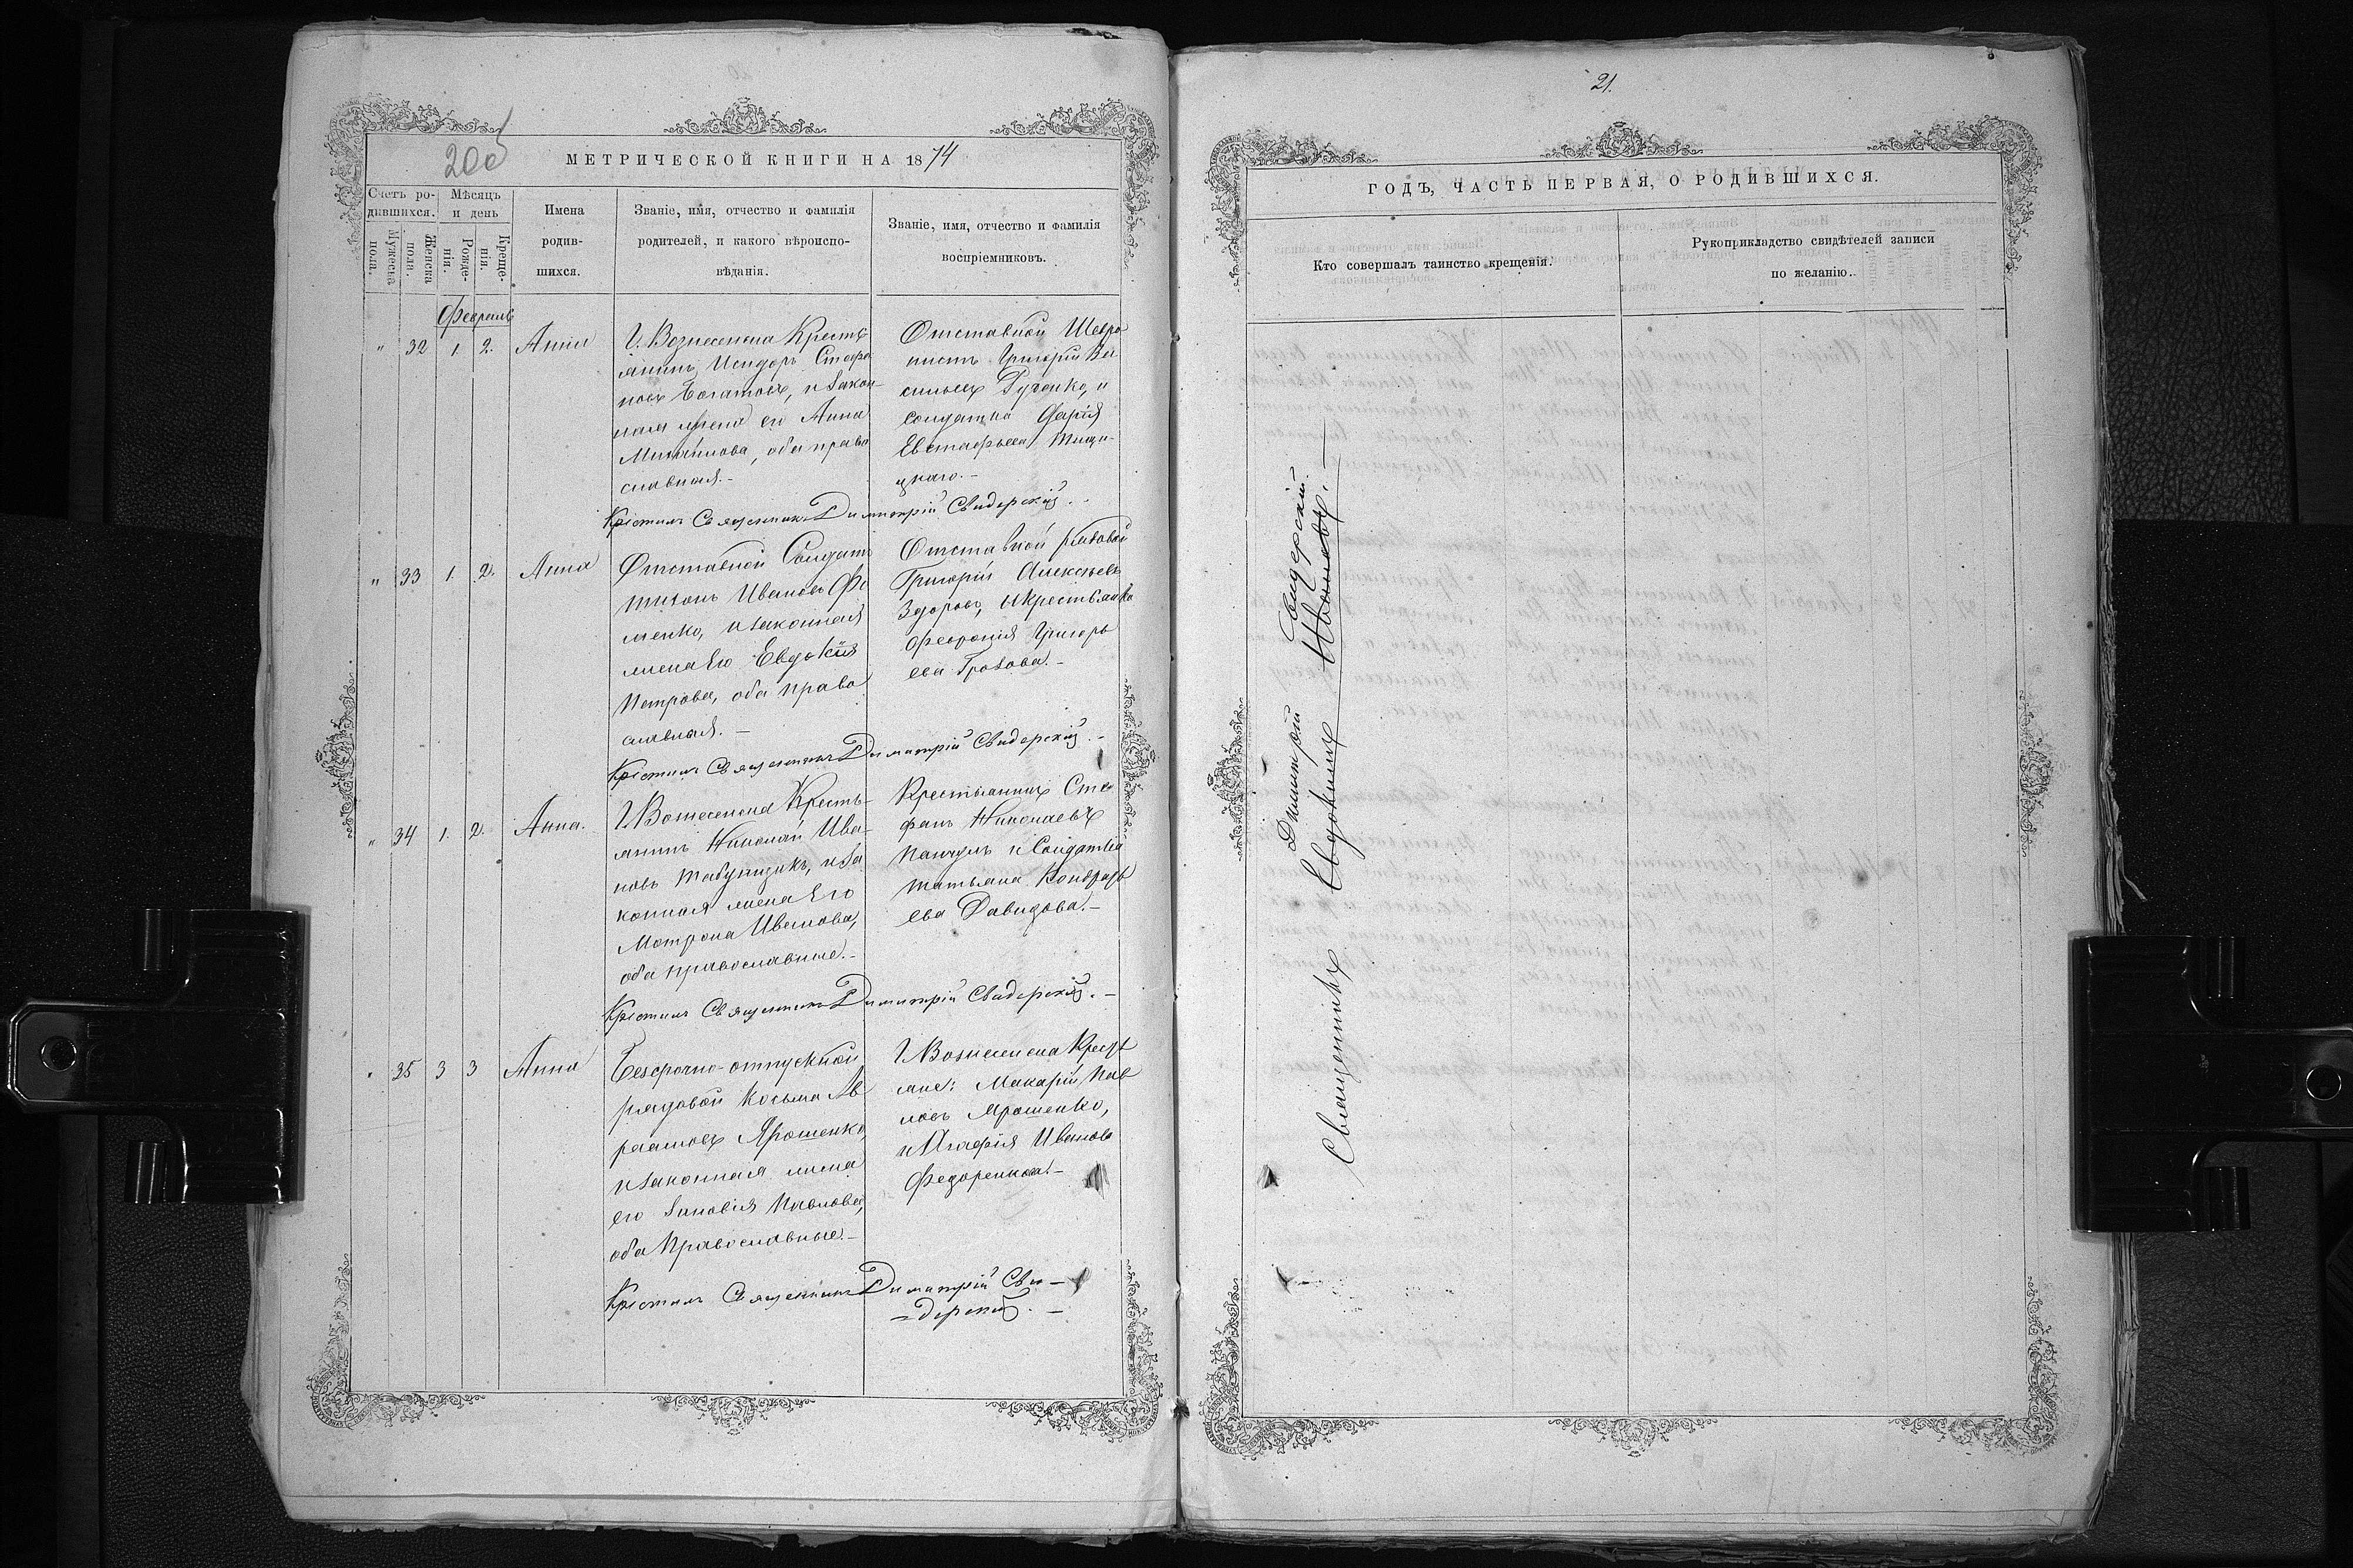 200
МЕТРИЧЕСКОЙ КНИГИ НА 1874
Счетъ ро-
дившихся.
Мужеска
пола.
Женска
пола.
Мѣсяцъ
и день
Рожде-
нія.
Креще-
нія.
Имена
родив-
шихся.
Званіе, имя, отчество и фамилія
родителей, и какого вѣроиспо-
вѣданія.
Званіе, имя, отчество и фамилія
воспріемниковъ.
Февраль
" 32 1. 2. Анна
Г. Вознесенска Кресть
янинъ Исидоръ Стефа
новъ Богатовъ, и закон
ная жена его Анна
Михайлова, оба право
славная.-
Отставной Шевро
нистъ Григорій Ва
сильевъ Гученко, и
солдатка
Евстафьева
цкаго.-
Крестилъ Священникъ Димитрій Свидерскій.-
" 33 1. 2. Анна
Отставной Солдатъ
Тихонъ Ивановъ Фо
менко, и законная
жена Его Евдокія
Петрова, оба право
славная. -
Отставной рядовой
Григорій Алексѣевъ
Здоровъ, и крестьянка
Февронія Григорь
ева Грозова.-
Крестилъ Священникъ Димитрій Свидерскій.-
" 34 1. 2. Анна.
Г. Вознесенска Кресть-
янинъ Николай Ива-
новъ Табунщикъ, и за
конная жена Его
Матрона Иванова,
оба православные.-
Крестьянинъ Сте
фанъ Николаевъ
Панчулъ и Солдатка
Татьяна Кондрать
ева Давидова.-
Крестилъ Священникъ Димитрій Свидерскій.-
" 35 3 3 Анна
Безсрочно-отпускной
рядовой Косьма Ав
раамовъ Ярошенко,
и законная жена
его Зиновія Павлова,
оба Православные.-
Г. Вознесенска Кресть
яне: Макарій Пав
ловъ Ярошенко,
и Агафія Иванова
Федоренкова.-
Крестилъ Священникъ Димитрій Сви-
=дерскій. -
21.
ГОДЪ, ЧАСТЬ ПЕРВАЯ, О РОДИВШИХСЯ.
Кто совершалъ таинство крещенія.
Рукоприкладство свидѣтелей записи
по желанію.
Димитрій Свидерскій.
Священникъ Евдокимъ Ивановъ. -